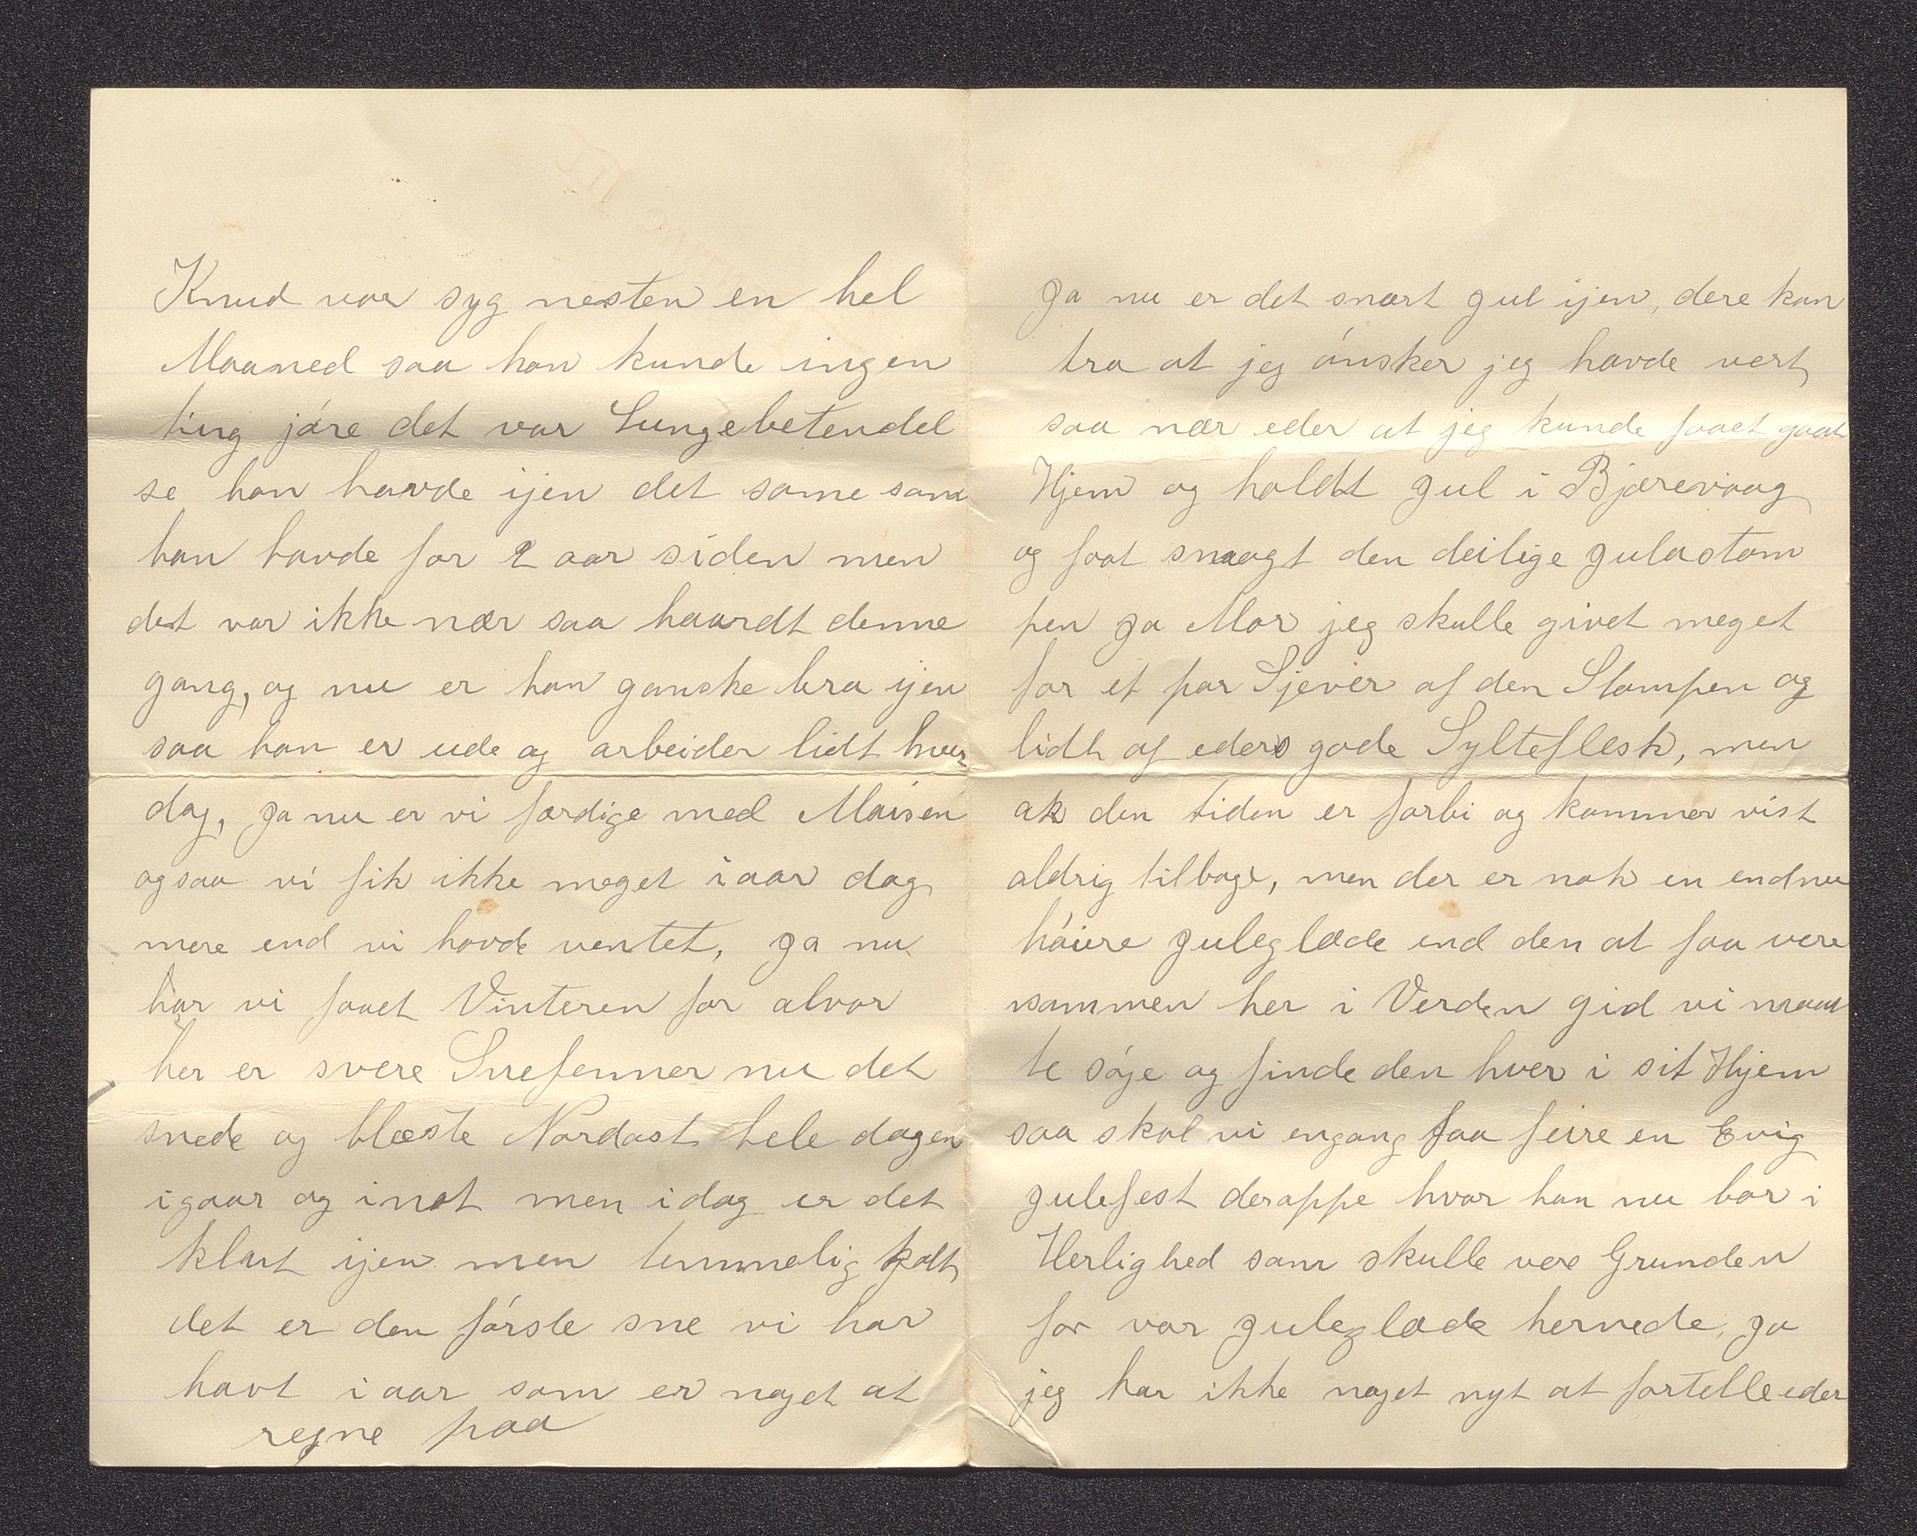 Knud var syg nesten en hel
Maaned saa han kunde ingen
ting jóre det var Lungebetendel
se han havde ijen det same som
han havde for 2 aar siden men
det var ikke nær saa haardt denne
gang, og nu er han ganske bra ijen
saa han er ude og arbeider lidt hver
dag, ja nu er vi færdige med Maisen
ogsaa vi fik ikke meget i aar dog
mere end vi havde ventet, ja nu
har vi faaet Vinteren for alvor
her er svere Snefenner nu det
snede og blæste Nordost hele dagen
igaar og inat men idag er det
klart ijen men temmelig kolt
det er den fórste sne vi har
havt i aar som er noget at
regne paa
Ja nu er det snart Jul ijen, dere kan
tro at jeg ónsker jeg havde vert
saa nær eder at jeg kunde faaet gaat
Hjem og holdt Jul i Bjærevaag
og faat smagt den deilige Julastom
pen ja Mor jeg skulle givet meget
for et par Sjever af den Stompen og
lidt af eders gode Sylteflesk, men
ak den tiden er forbi og kommer vist
aldrig tilbage, men der er nok en endnu
hóiere Juleglæde end den at faa vere
sammen her i Verden gid vi maat
te sóje og finde den hver i sit Hjem
saa skal vi engang faa feire en Evig
Julefest deroppe hvor han nu bor i
Herlighed som skulle vere Grunden
for vor Juleglæde hernede, ja
jeg har ikke noget nyt at fortelle eder